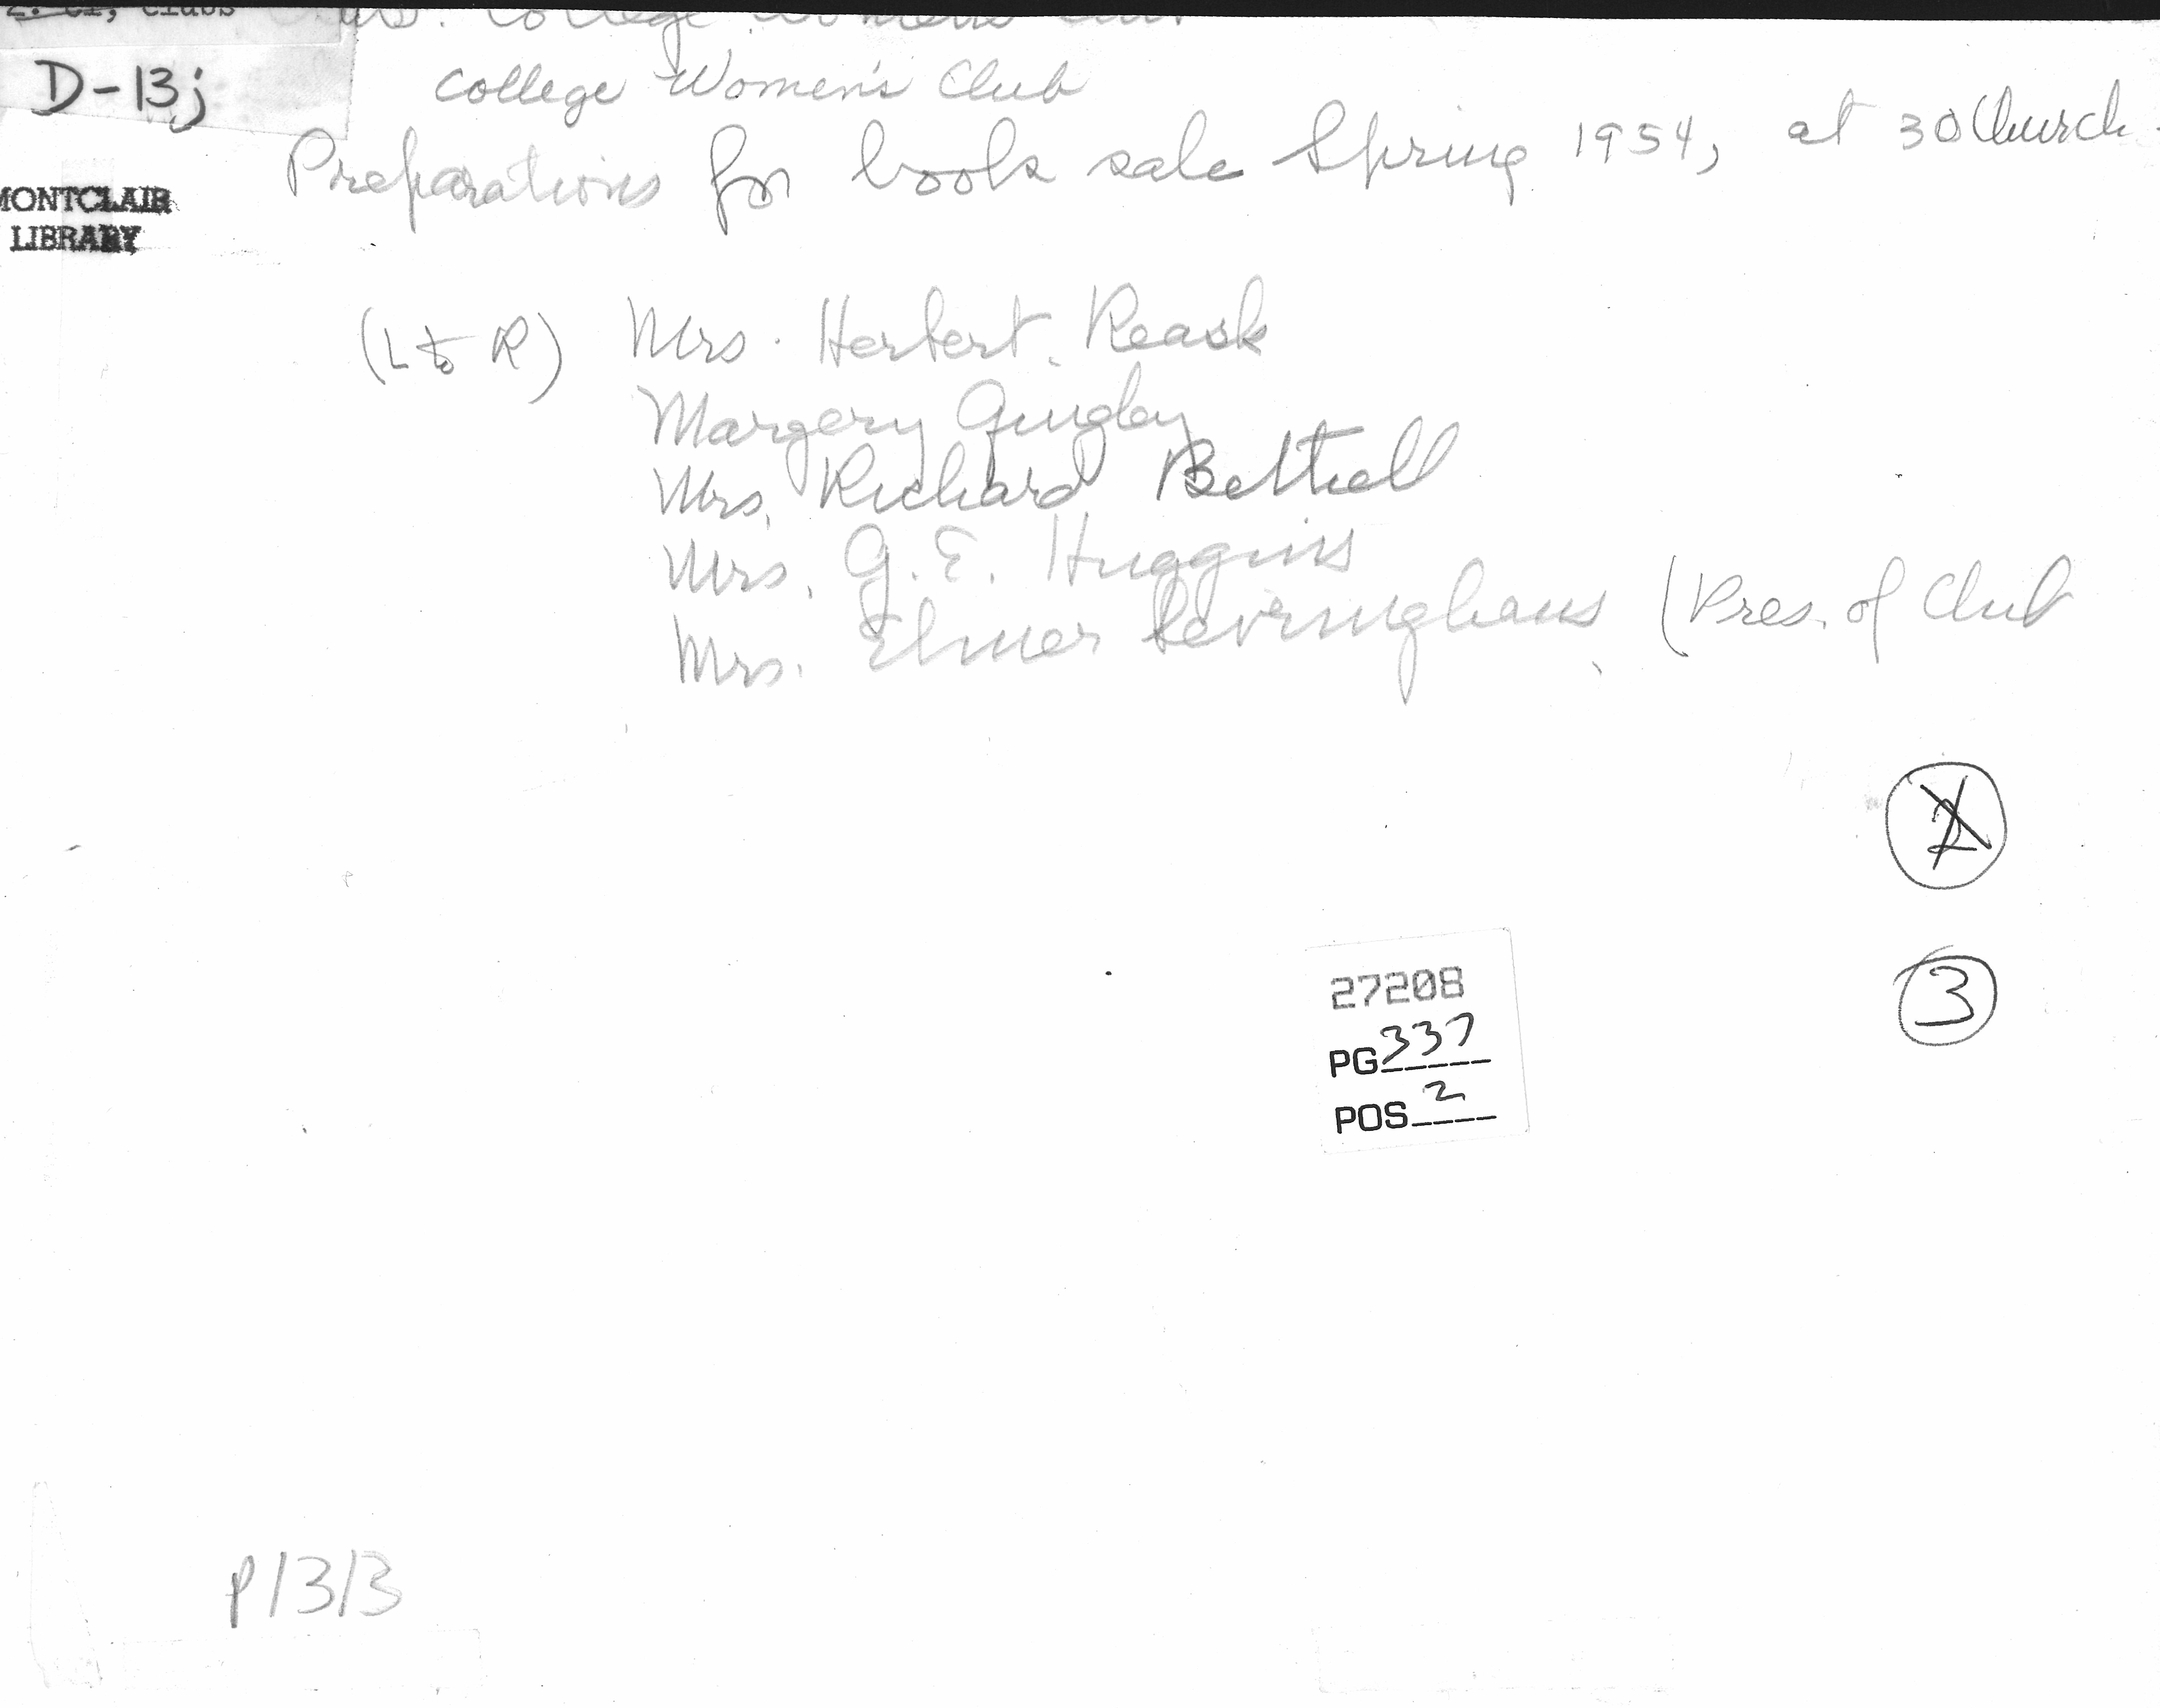 College Women's Club
D-13j
College Women's Club
Preparations for book sale Spring 1954, at 30 Church
MONTCLAIR
LIBRARY
(L to R) Mrs. Herbert Reask
Margery
Mrs. Richard Bethell
Mrs. G. E. Huggins
Mrs. Elmer Sevringhaus (Pres. of Club
2
3
27208
PG 337
POS 2
P/3/3